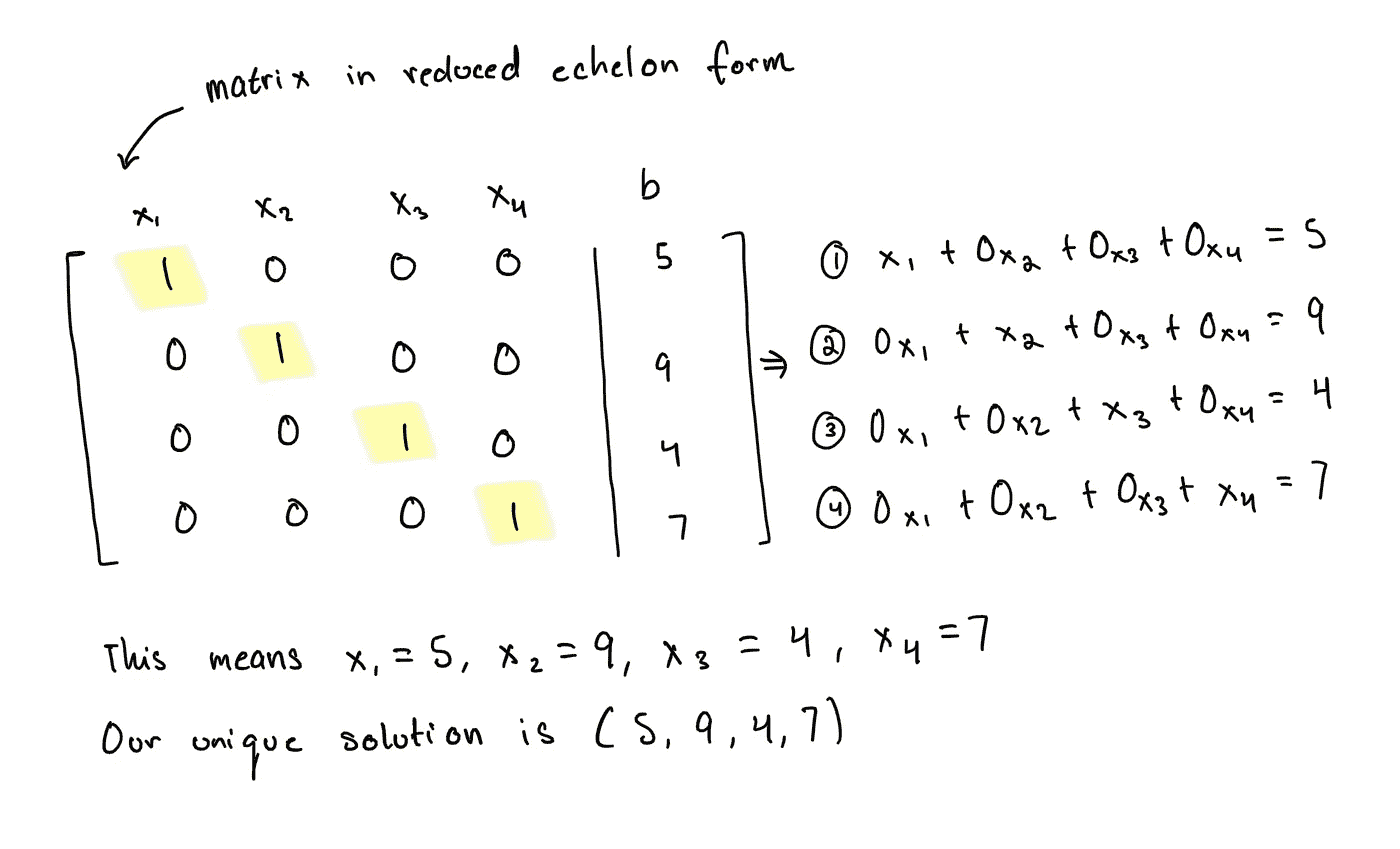 matrix in reduced echelon form
x₁ x₂ x₃ x₄ b
1 0 0 0 | 5
0 1 0 0 | 9
0 0 1 0 | 4
0 0 0 1 | 7
⇒
① x₁ + 0x₂ + 0x₃ + 0x₄ = 5
② 0x₁ + x₂ + 0x₃ + 0x₄ = 9
③ 0x₁ + 0x₂ + x₃ + 0x₄ = 4
④ 0x₁ + 0x₂ + 0x₃ + x₄ = 7
This means x₁ = 5, x₂ = 9, x₃ = 4, x₄ = 7
Our unique solution is (5, 9, 4, 7)